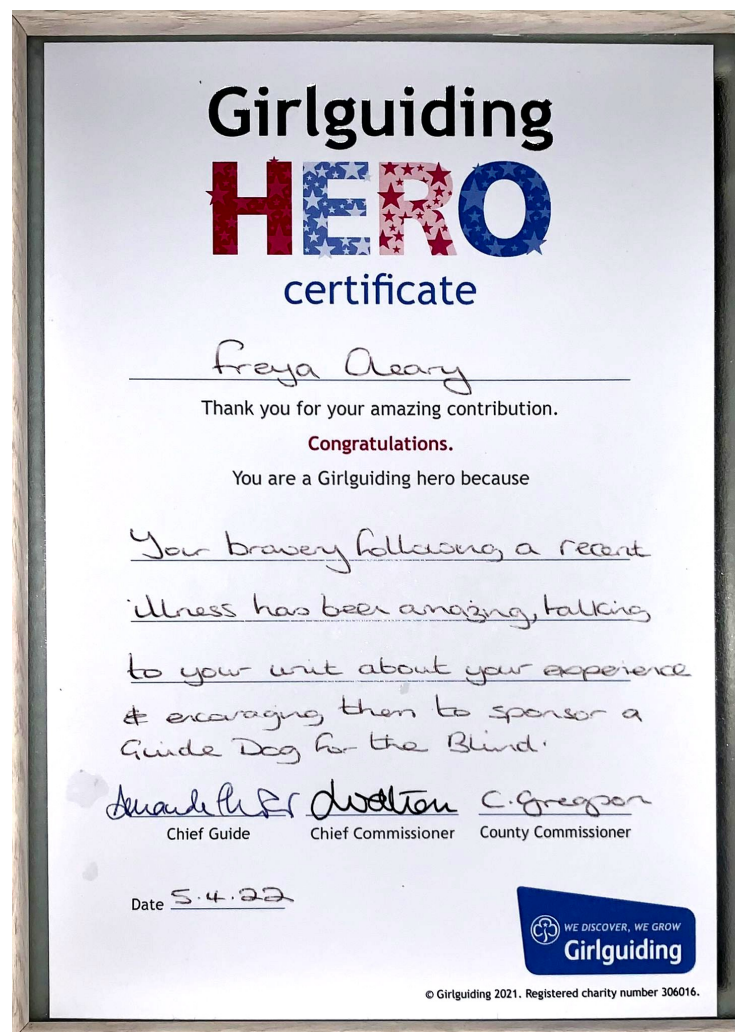 Girlguiding
HERO
certificate
Freya Cleary
Thank you for your amazing contribution.
Congratulations.
You are a Girlguiding hero because
Your bravery following a recent
illness has been amazing, talking
to your unit about your experience
& encouraging them to sponsor a
Guide Dog for the Blind.
C. Gregson
Chief Guide Chief Commissioner County Commissioner
Date 5.4.22
WE DISCOVER, WE GROW
Girlguiding
© Girlguiding 2021. Registered charity number 306016.